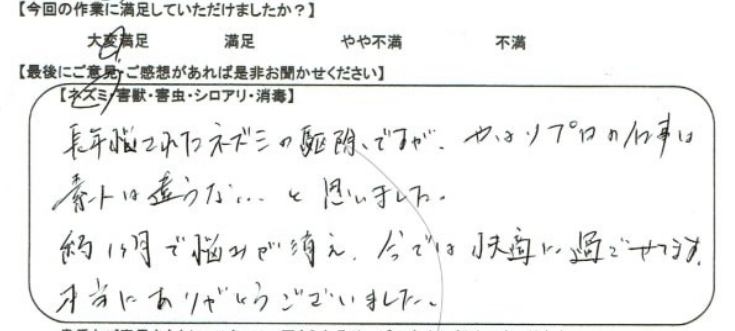 【今回の作業に満足していただけましたか？】
大変満足 満足 やや不満 不満
【最後にご意見・ご感想があれば是非お聞かせください】
【ネズミ・害獣・害虫・シロアリ・消毒】
長年悩まされたネズミの駆除、ですが、やはりプロの仕事は
素人は違うな... と思いました。
約1ヶ月で悩みが消え、今では快適に過ごせてます。
本当にありがとうございました。